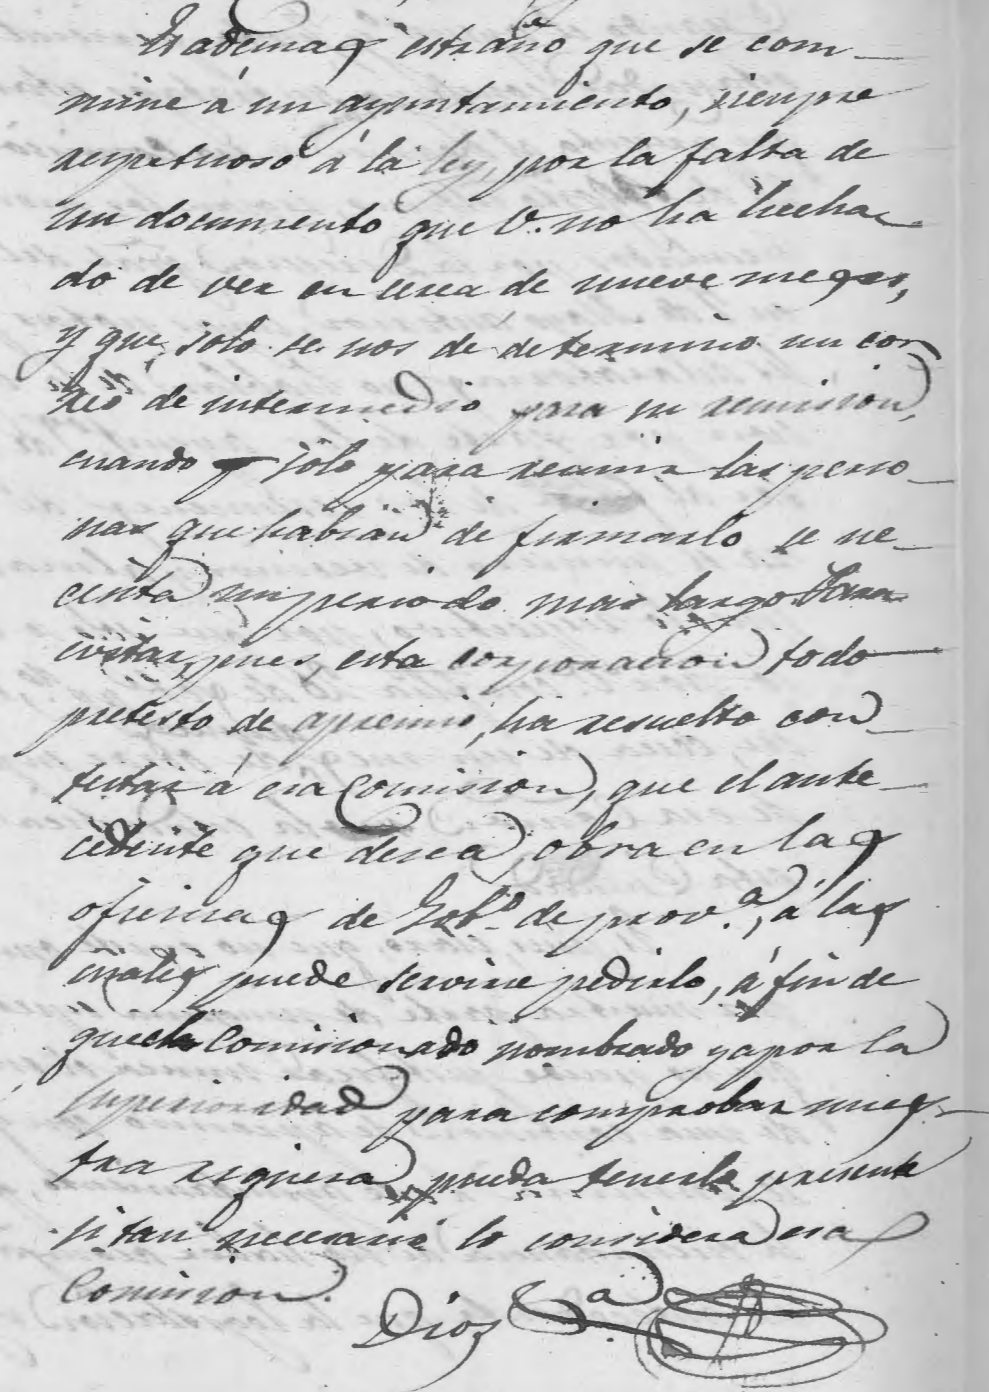 Es ademas estraño que se com-
mine á un ayuntamiento, siempre
respetuoso á la ley, por la falta de
un documento que V. no ha hecha-
do de ver en cerca de nueve meses,
y que solo se nos dé de termino un cor
reo de intermedio para su remision,
cuando solo para reunir las perso-
nas que habian de firmarlo se ne-
cesita un periodo mas largo Para
evitar, pues, esta corporacion todo
pretesto de apremio, ha resuelto con-
testar á esa Comision, que el ante-
cedente que desea, obra en las
oficinas de Gobº. de provª., á las
cuales puede servirse pedirlo, á fin de
que el Comisionado nombrado ya por la
Superioridad para comprobar nues-
tra riqueza pueda tenerlo presente
si tan necesario lo considera esa
Comision.
Dios &a